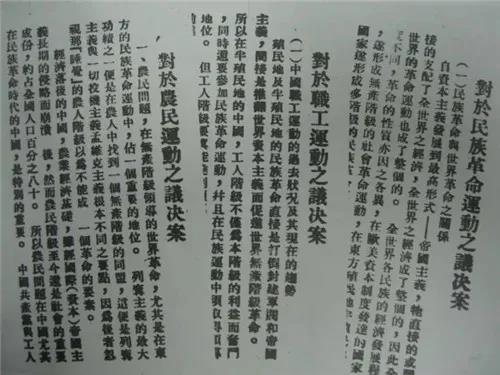 對於民族革命運動之議決案
(一)民族革命與世界革命之關係
自資本主義發展到最高形式——帝國主義，牠直接的或間
接的支配了全世界之經濟，全世界之經濟成了整個的，因此全
世界的革命運動也成了整個的。全世界各民族的經濟發展程
不同，革命的性質亦因之各異，在歐美資本制度發達的國家
，遂形成無產階級的社會革命運動，在東方殖民地半
國家遂形成多階級的民族革命
對於職工運動之議決案
(一)中國職工運動的過去狀況及其現在的趨勢
殖民地及半殖民地的民族革命直接是打倒封建軍閥和帝國
主義，間接是推翻世界資本主義而促進世界無產階級革命。
所以在半殖民地的中國，工人階級不僅爲本階級的利益而奮鬥
，同時還要參加民族革命運動，并且在民族運動中須取得領導
地位。但工人階級要
對於農民運動之議決案
一、農民問題，在無產階級領導的世界革命，尤其是在東
方的民族革命運動中，佔一個重要的地位。列寧主義的最大
功績之一便是在農人中找到一個無產階級的同盟，這便是列寧
主義與一切投機主義孟維克主義根本不同之要點，因爲後者忽
視那「睡覺」的農人階級以爲不能成 一個革命的要素。
經濟落後的中國，農業經濟基礎，雖經國際(資本)帝國主
義長期的侵略而崩潰 後，然而農民階級至今還是社會的重要
成份，約占全國人口百分之八十。所以農民問題在中國尤其
在民族革命時代的中國，是特別的重要。中國共產黨與工人